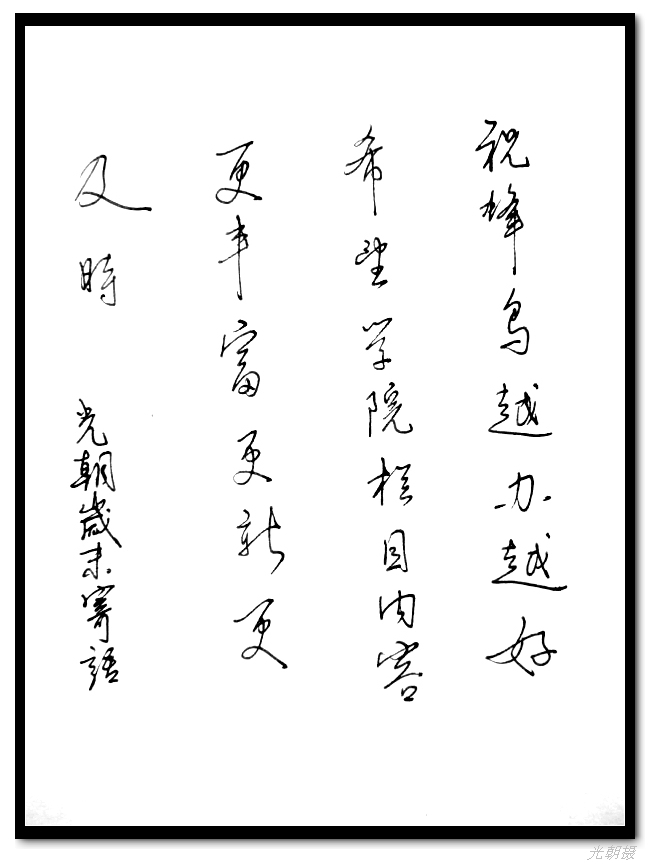 祝蜂鸟越办越好
希望学院栏目内容
更丰富更新更
及時
光朝歲末寄語
光朝摄